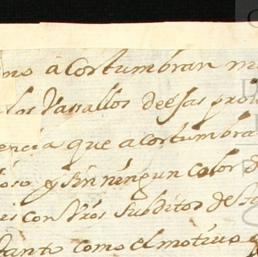 mo acortumbran
los Vasallos deesas prov
encia que acortumbra
oso y sin ningun color d
con Vros Subditos de
tanto como el motivo